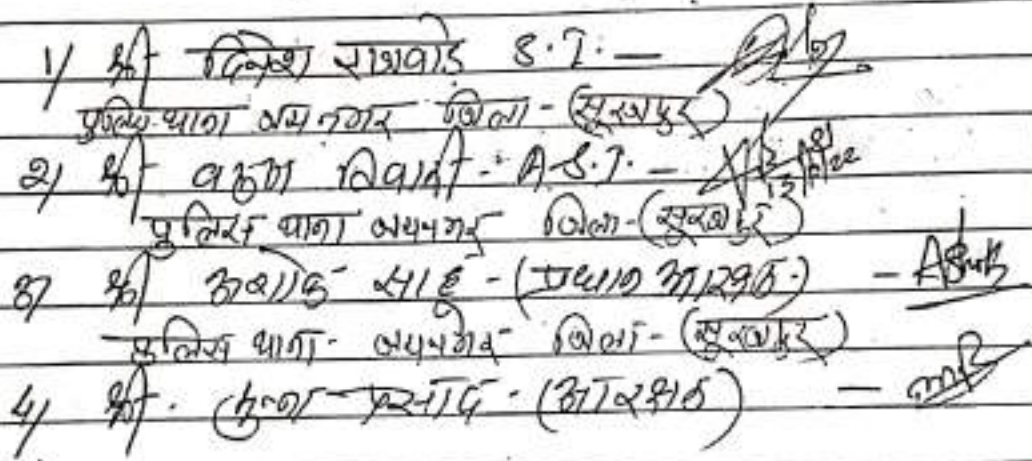 1/ श्री दिनेश राठौर S.I. —
पुलिस थाना जयनगर जिला - (सूरजपुर)
2/ श्री वरुण तिवारी - A.S.I. —
पुलिस थाना जयनगर जिला - (सूरजपुर)
3/ श्री अशोक साहू - (प्रधान आरक्षक) - Ashok
पुलिस थाना - जयनगर जिला - (सूरजपुर)
4/ श्री. प्रसाद - (आरक्षक) —